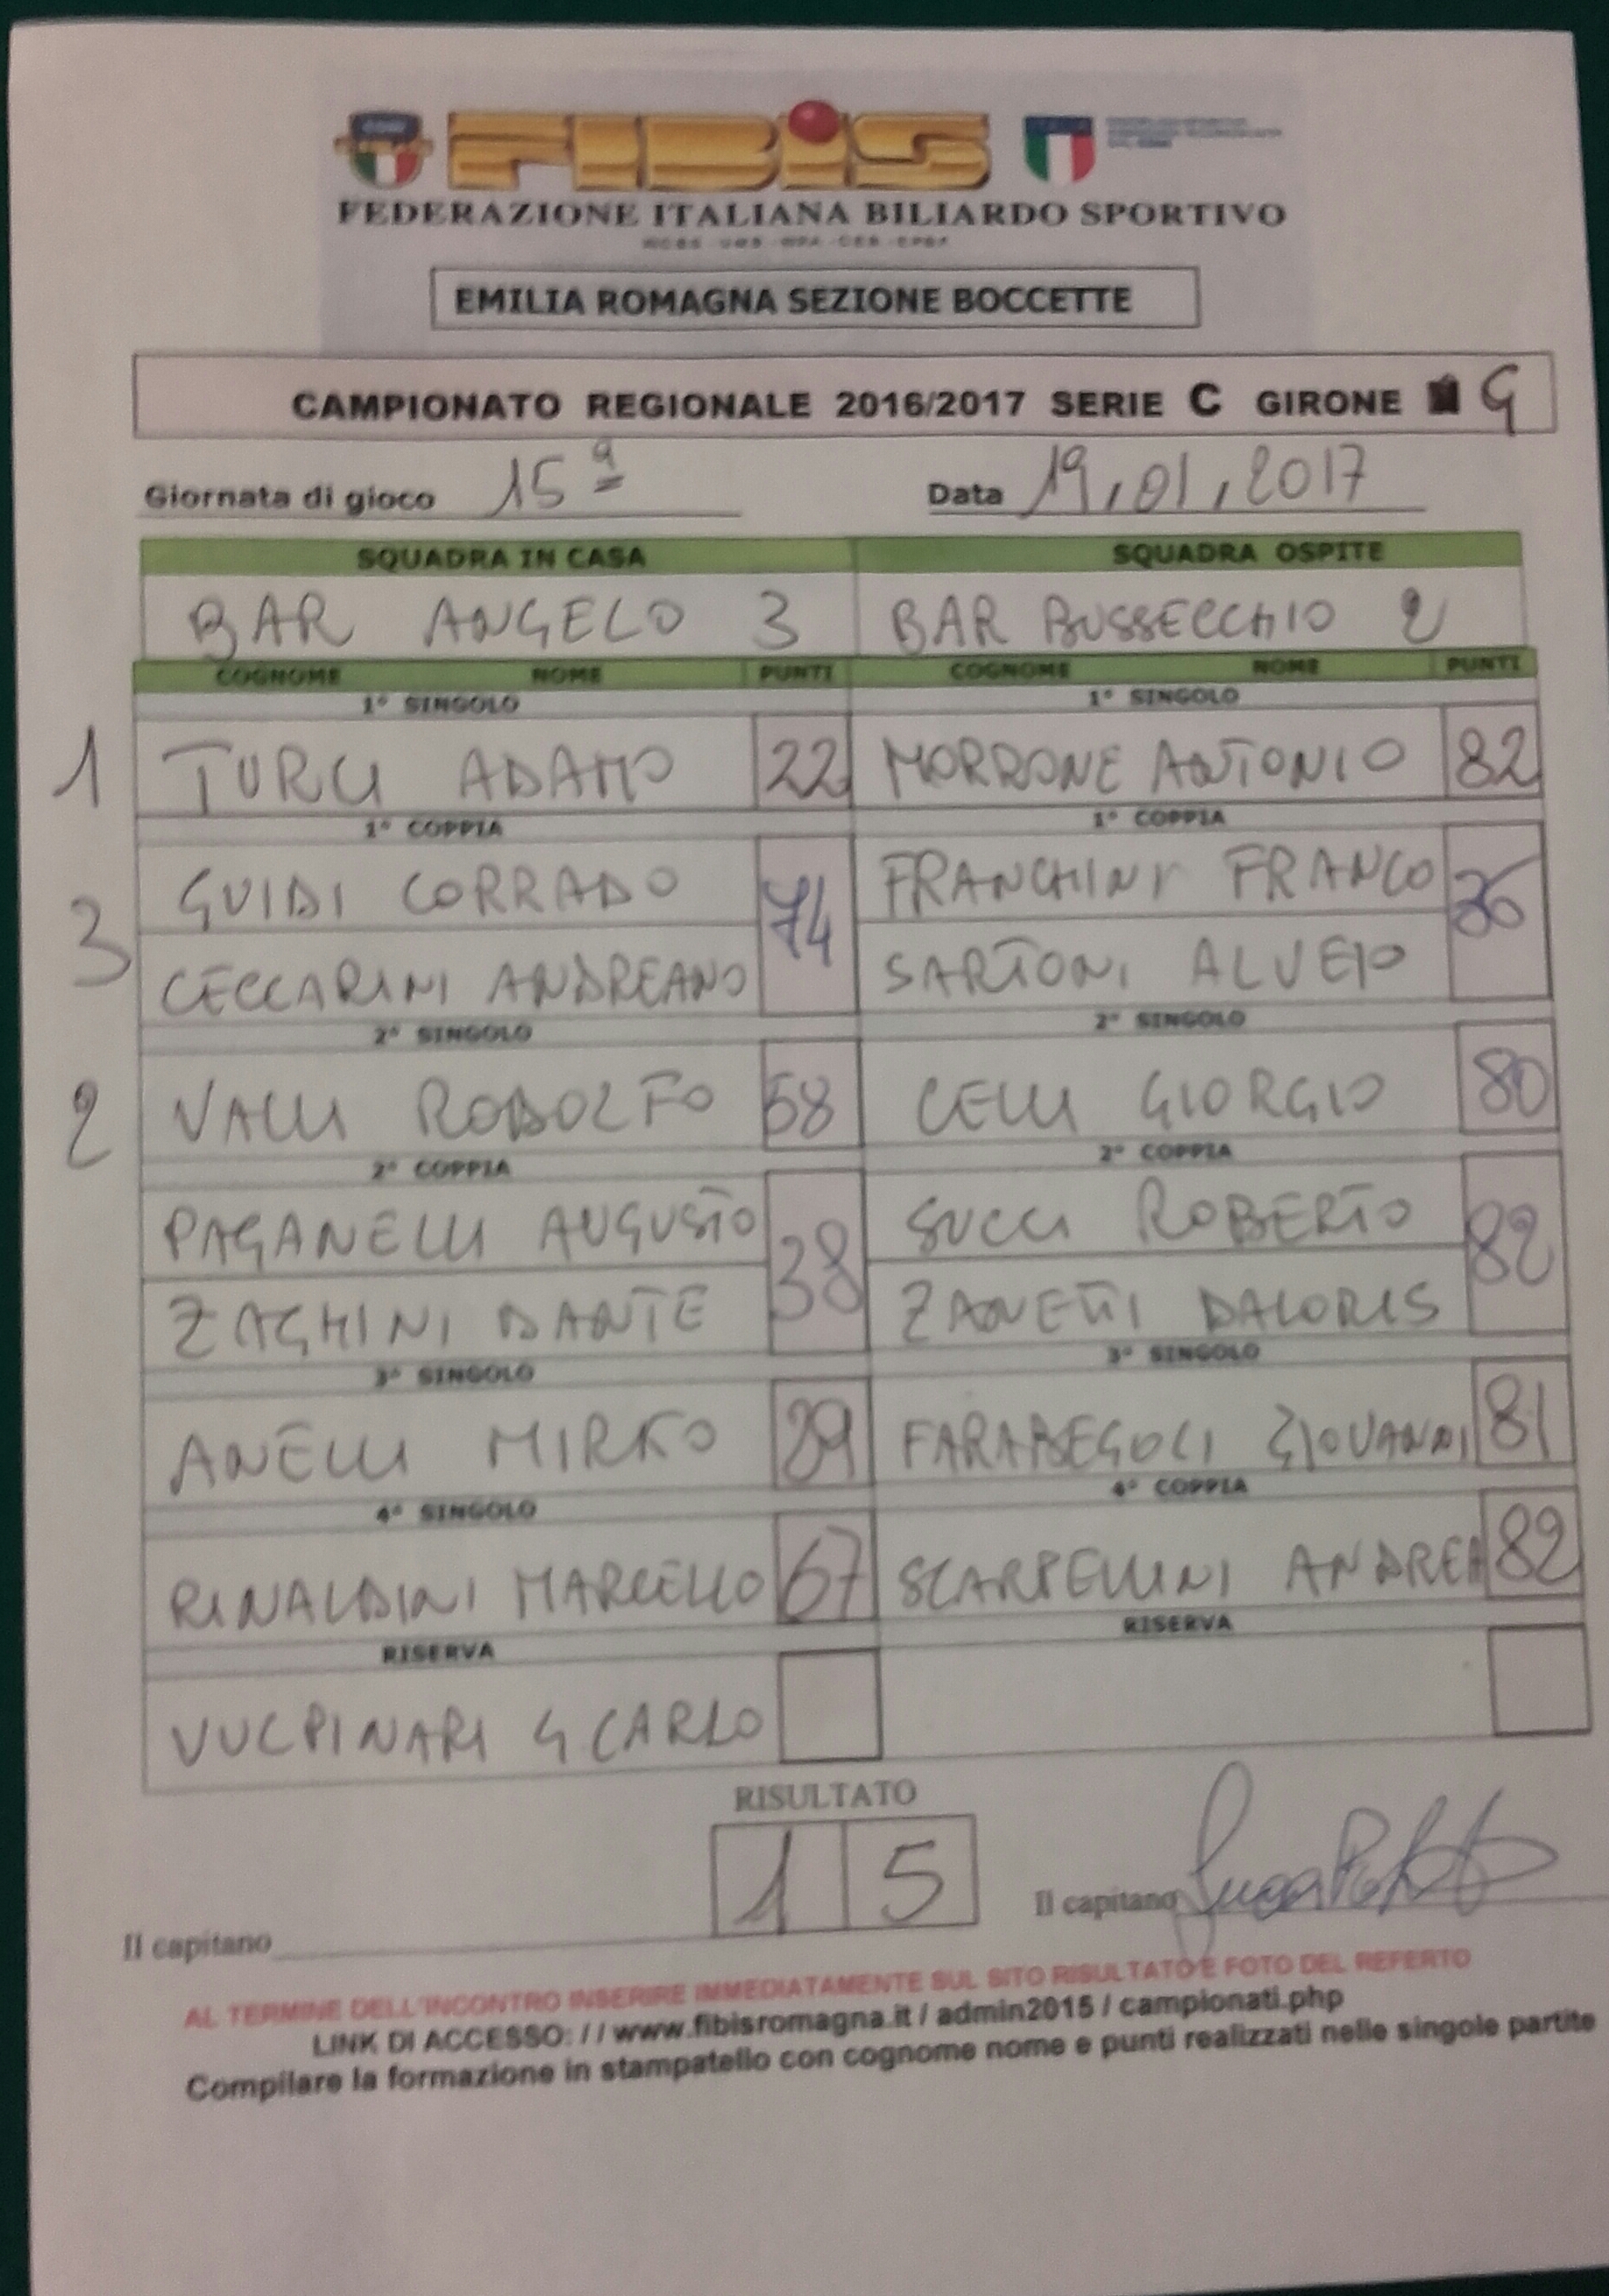 FIBiS
FEDERAZIONE ITALIANA BILIARDO SPORTIVO
EMILIA ROMAGNA SEZIONE BOCCETTE
CAMPIONATO REGIONALE 2016/2017 SERIE C GIRONE G
Giornata di gioco 15ª Data 19,01,2017
SQUADRA IN CASA SQUADRA OSPITE
BAR ANGELO 3 BAR BUSSECCHIO 2
COGNOME NOME PUNTI COGNOME NOME PUNTI
1° SINGOLO 1° SINGOLO
1 TURCI ADAMO 22 MORRONE ANTONIO 82
1° COPPIA 1° COPPIA
GUIDI CORRADO FRANCHINI FRANCO
3 74 36
CECCARINI ANDREANO SARTONI ALVEIO
2° SINGOLO 2° SINGOLO
2 VALLI RODOLFO 58 CELLI GIORGIO 80
2° COPPIA 2° COPPIA
PAGANELLI AUGUSTO SUCCI ROBERTO
38 82
ZAGHINI DANTE ZANETTI DALORIS
3° SINGOLO 3° SINGOLO
ANELLI MIRKO 29 FARABEGOLI GIOVANNI 81
4° SINGOLO 4° COPPIA
RINALDINI MARCELLO 67 SCARPELLINI ANDREA 82
RISERVA RISERVA
VULPINARI G CARLO
RISULTATO
1 5
Il capitano Il capitano
AL TERMINE DELL'INCONTRO INSERIRE IMMEDIATAMENTE SUL SITO RISULTATO E FOTO DEL REFERTO
LINK DI ACCESSO: / / www.fibisromagna.it / admin2015 / campionati.php
Compilare la formazione in stampatello con cognome nome e punti realizzati nelle singole partite